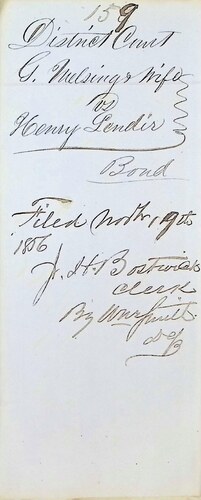 159
District Court
G. Hulsing & Wife
vs
Henry Lendir
Bond
Filed Novbr 19th
1856
J. H. Bostwick
Clerk
By Wm Smith